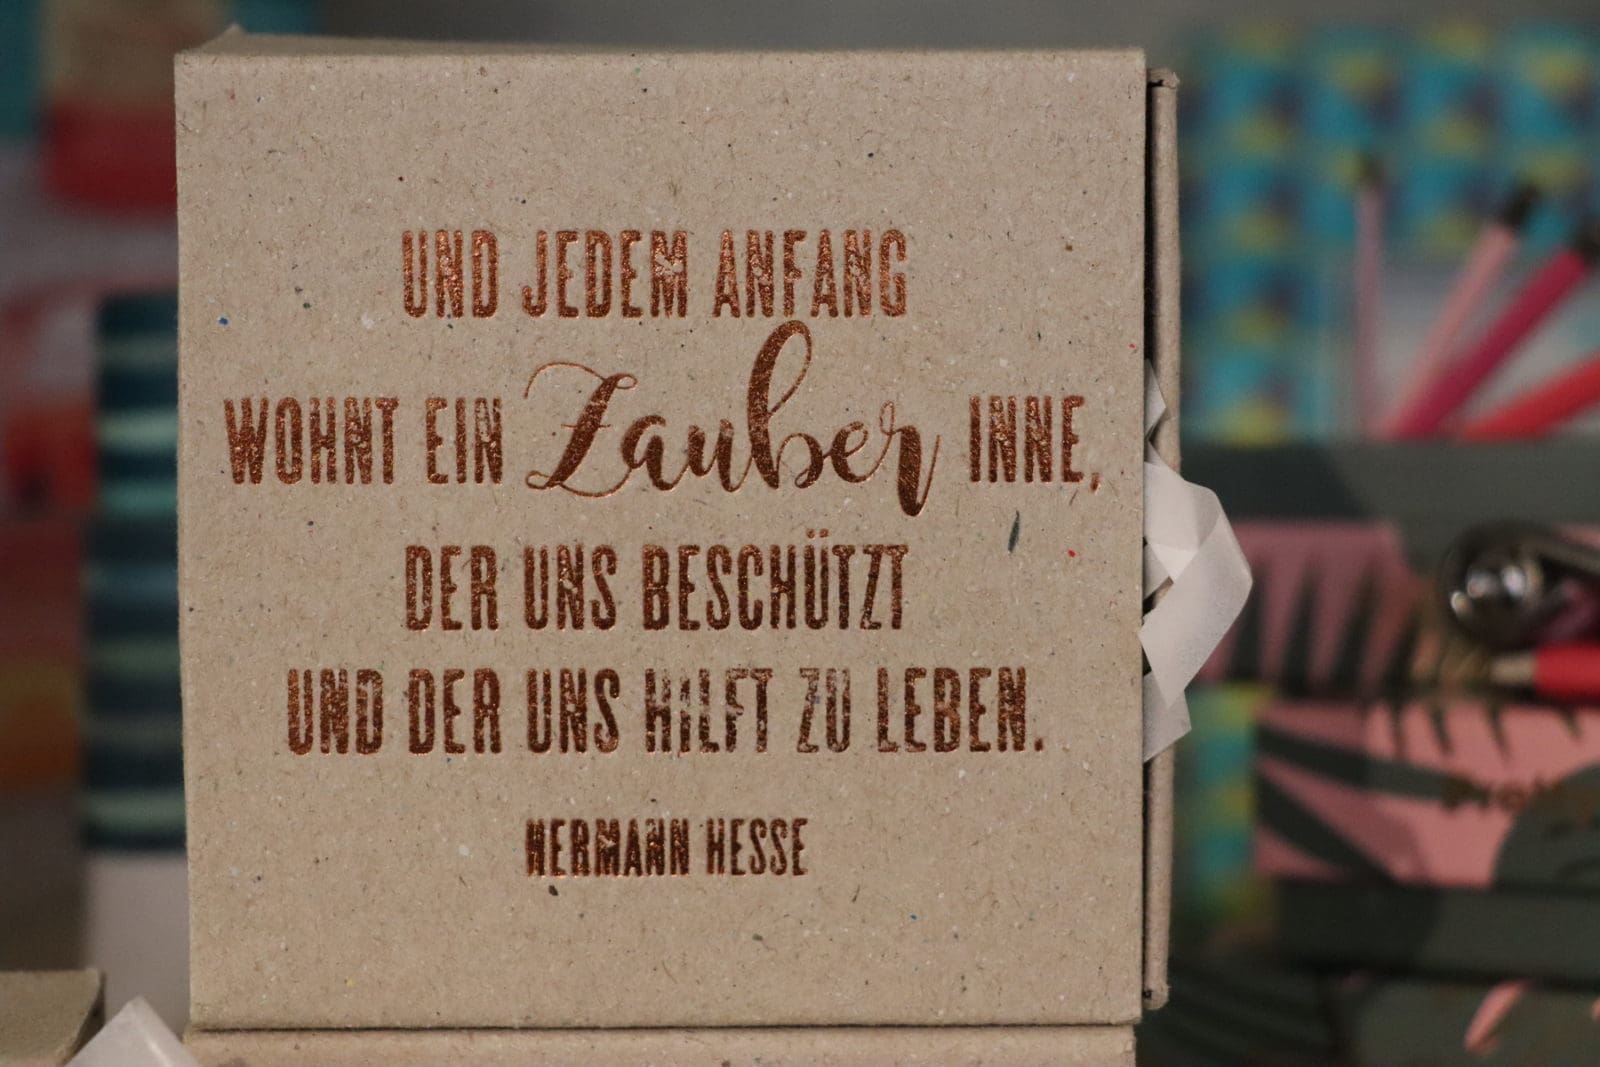 UND JEDEM ANFANG
WOHNT EIN Zauber INNE,
DER UNS BESCHÜTZT
UND DER UNS HILFT ZU LEBEN.
HERMANN HESSE